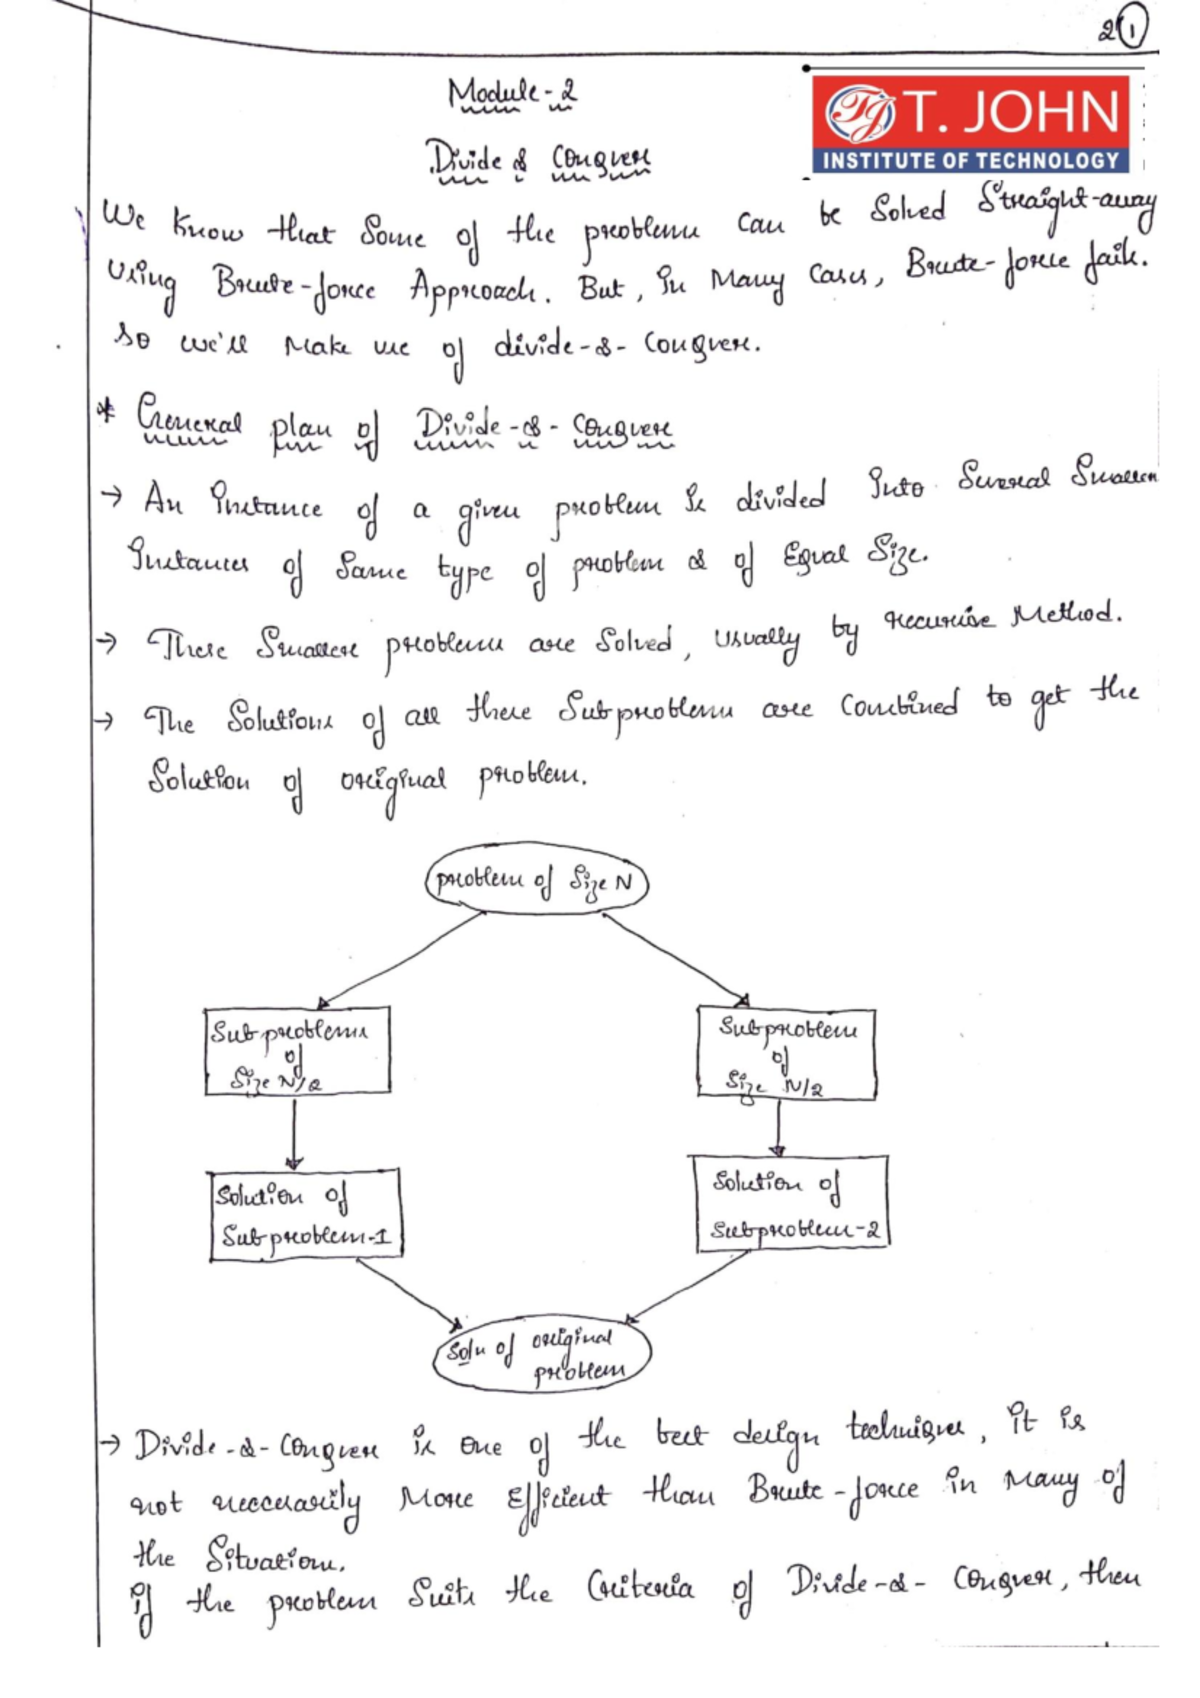 2 1
Module-2
T. JOHN
INSTITUTE OF TECHNOLOGY
Divide & Conquer
We know that some of the problem can be solved straight-away
using Brute-force Approach. But, in Many cases, Brute-force fails.
so we'll make use of divide-&-conquer.
* General plan of Divide-&-Conquer
→ An instance of a given problem is divided into several smaller
instances of same type of problem & of Equal size.
→ These smaller problems are solved, usually by recursive Method.
→ The solutions of all these subproblems are combined to get the
solution of original problem.
problem of size N
Subproblems
of
size N/2
Subproblem
of
size N/2
Solution of
Subproblem-1
Solution of
Subproblem-2
Soln of original
problem
→ Divide-&-Conquer is one of the best design techniques, it is
not neccesarily More Efficient than Brute-force in Many of
the situations.
if the problem suits the criteria of Divide-&-Conquer, then